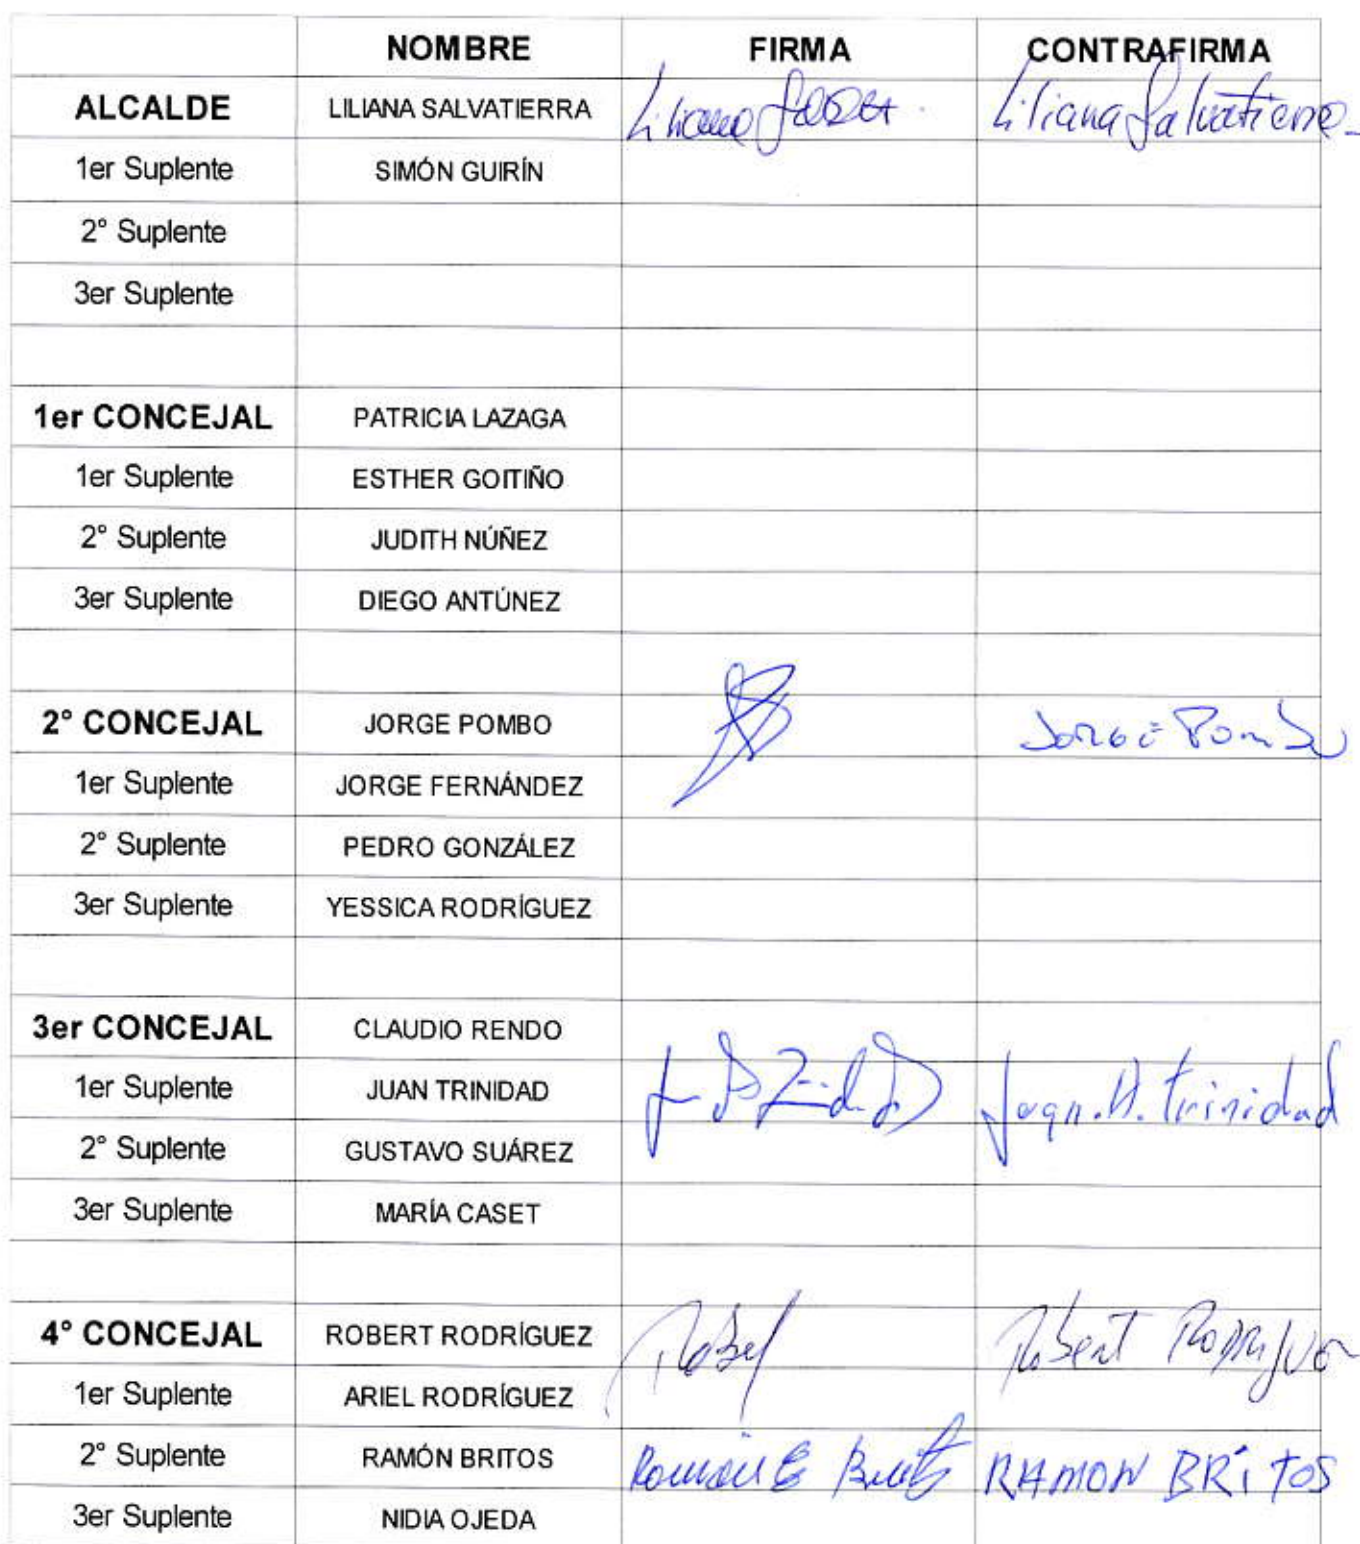 NOMBRE FIRMA CONTRAFIRMA
ALCALDE LILIANA SALVATIERRA Liliana Liliana Salvatierra
1er Suplente SIMÓN GUIRÍN
2° Suplente
3er Suplente
1er CONCEJAL PATRICIA LAZAGA
1er Suplente ESTHER GOITIÑO
2° Suplente JUDITH NÚÑEZ
3er Suplente DIEGO ANTÚNEZ
2° CONCEJAL JORGE POMBO Jorge Pombo
1er Suplente JORGE FERNÁNDEZ
2° Suplente PEDRO GONZÁLEZ
3er Suplente YESSICA RODRÍGUEZ
3er CONCEJAL CLAUDIO RENDO
1er Suplente JUAN TRINIDAD Trinidad
2° Suplente GUSTAVO SUÁREZ
3er Suplente MARÍA CASET
4° CONCEJAL ROBERT RODRÍGUEZ Robert Rodríguez
1er Suplente ARIEL RODRÍGUEZ
2° Suplente RAMÓN BRITOS Ramón E Britos RAMON BRITOS
3er Suplente NIDIA OJEDA